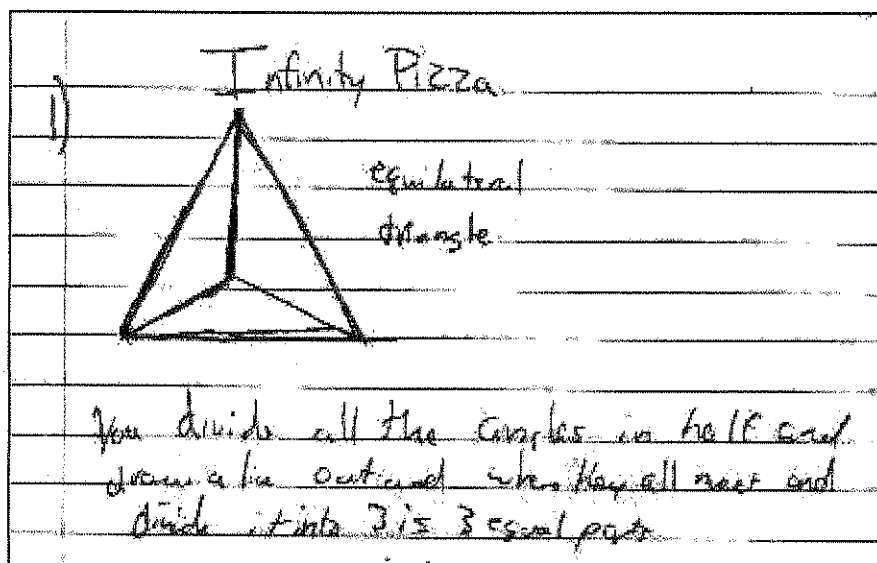 Infinity Pizza
1)
equilateral
triangle
You divide all the angles in half and
draw a line out and when they all meet and
divide it into 3 is 3 equal parts